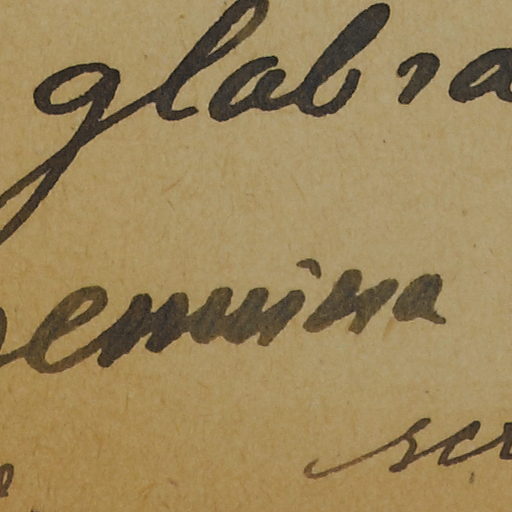 glabra
genuina
scr